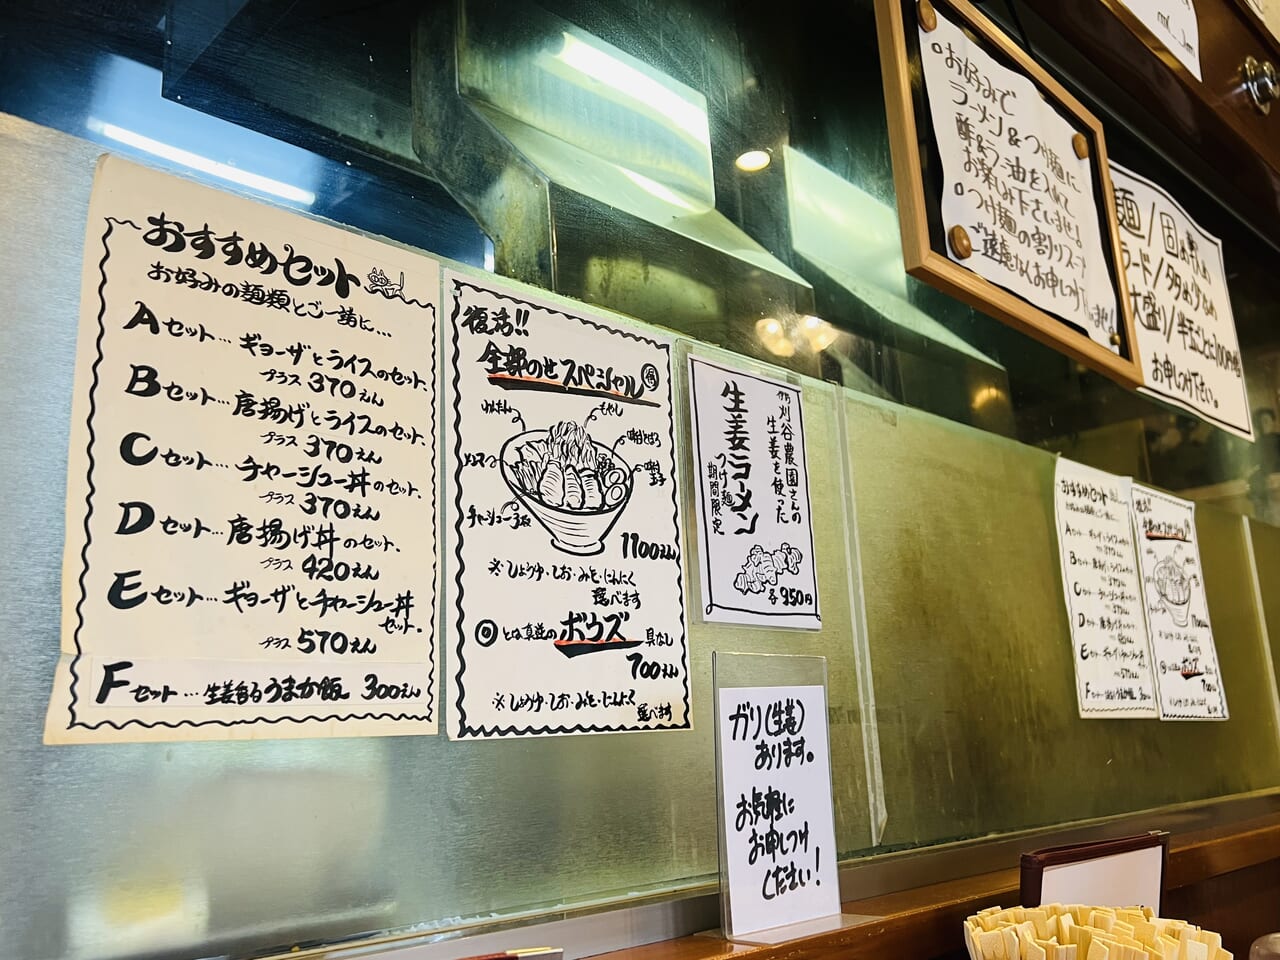 おすすめセット
お好みの麺類とご一緒に…
Aセット…ギョーザとライスのセット.
プラス370えん
Bセット…唐揚げとライスのセット.
プラス370えん
Cセット…チャーシュー丼のセット.
プラス370えん
Dセット…唐揚げ丼のセット.
プラス420えん
Eセット…ギョーザとチャーシュー丼
セット.
プラス570えん
Fセット…生姜香るうまか飯 300えん
復活!!
全部のせスペシャル
もやし
味玉
チャーシュー3枚
1100えん
※しょうゆ・しお・みそ・にんにく
選べます
◎とは真逆のボウズ 具なし
700えん
※しょうゆ・しお・みそ・にんにく
選べます
刈谷農園さんの
生姜を使った
生姜ラーメン
つけ麺
期間限定
各950円
ガリ(生姜)
あります。
お気軽に
お申しつけ
ください!
お好みで
ラーメン&つけ麺に
酢&ラー油を入れて
お楽しみ下さいませ!
つけ麺の割りスープ
ご遠慮なくお申しつけ下さいませ!
麺/固めやわめ
大盛り/半玉ごと100円増
お申しつけ下さい。
おすすめセット
Aセット…ギョーザとライスのセット
Bセット
Cセット
Dセット
Eセット
Fセット
復活!!
全部のせスペシャル
1100えん
ボウズ
700えん